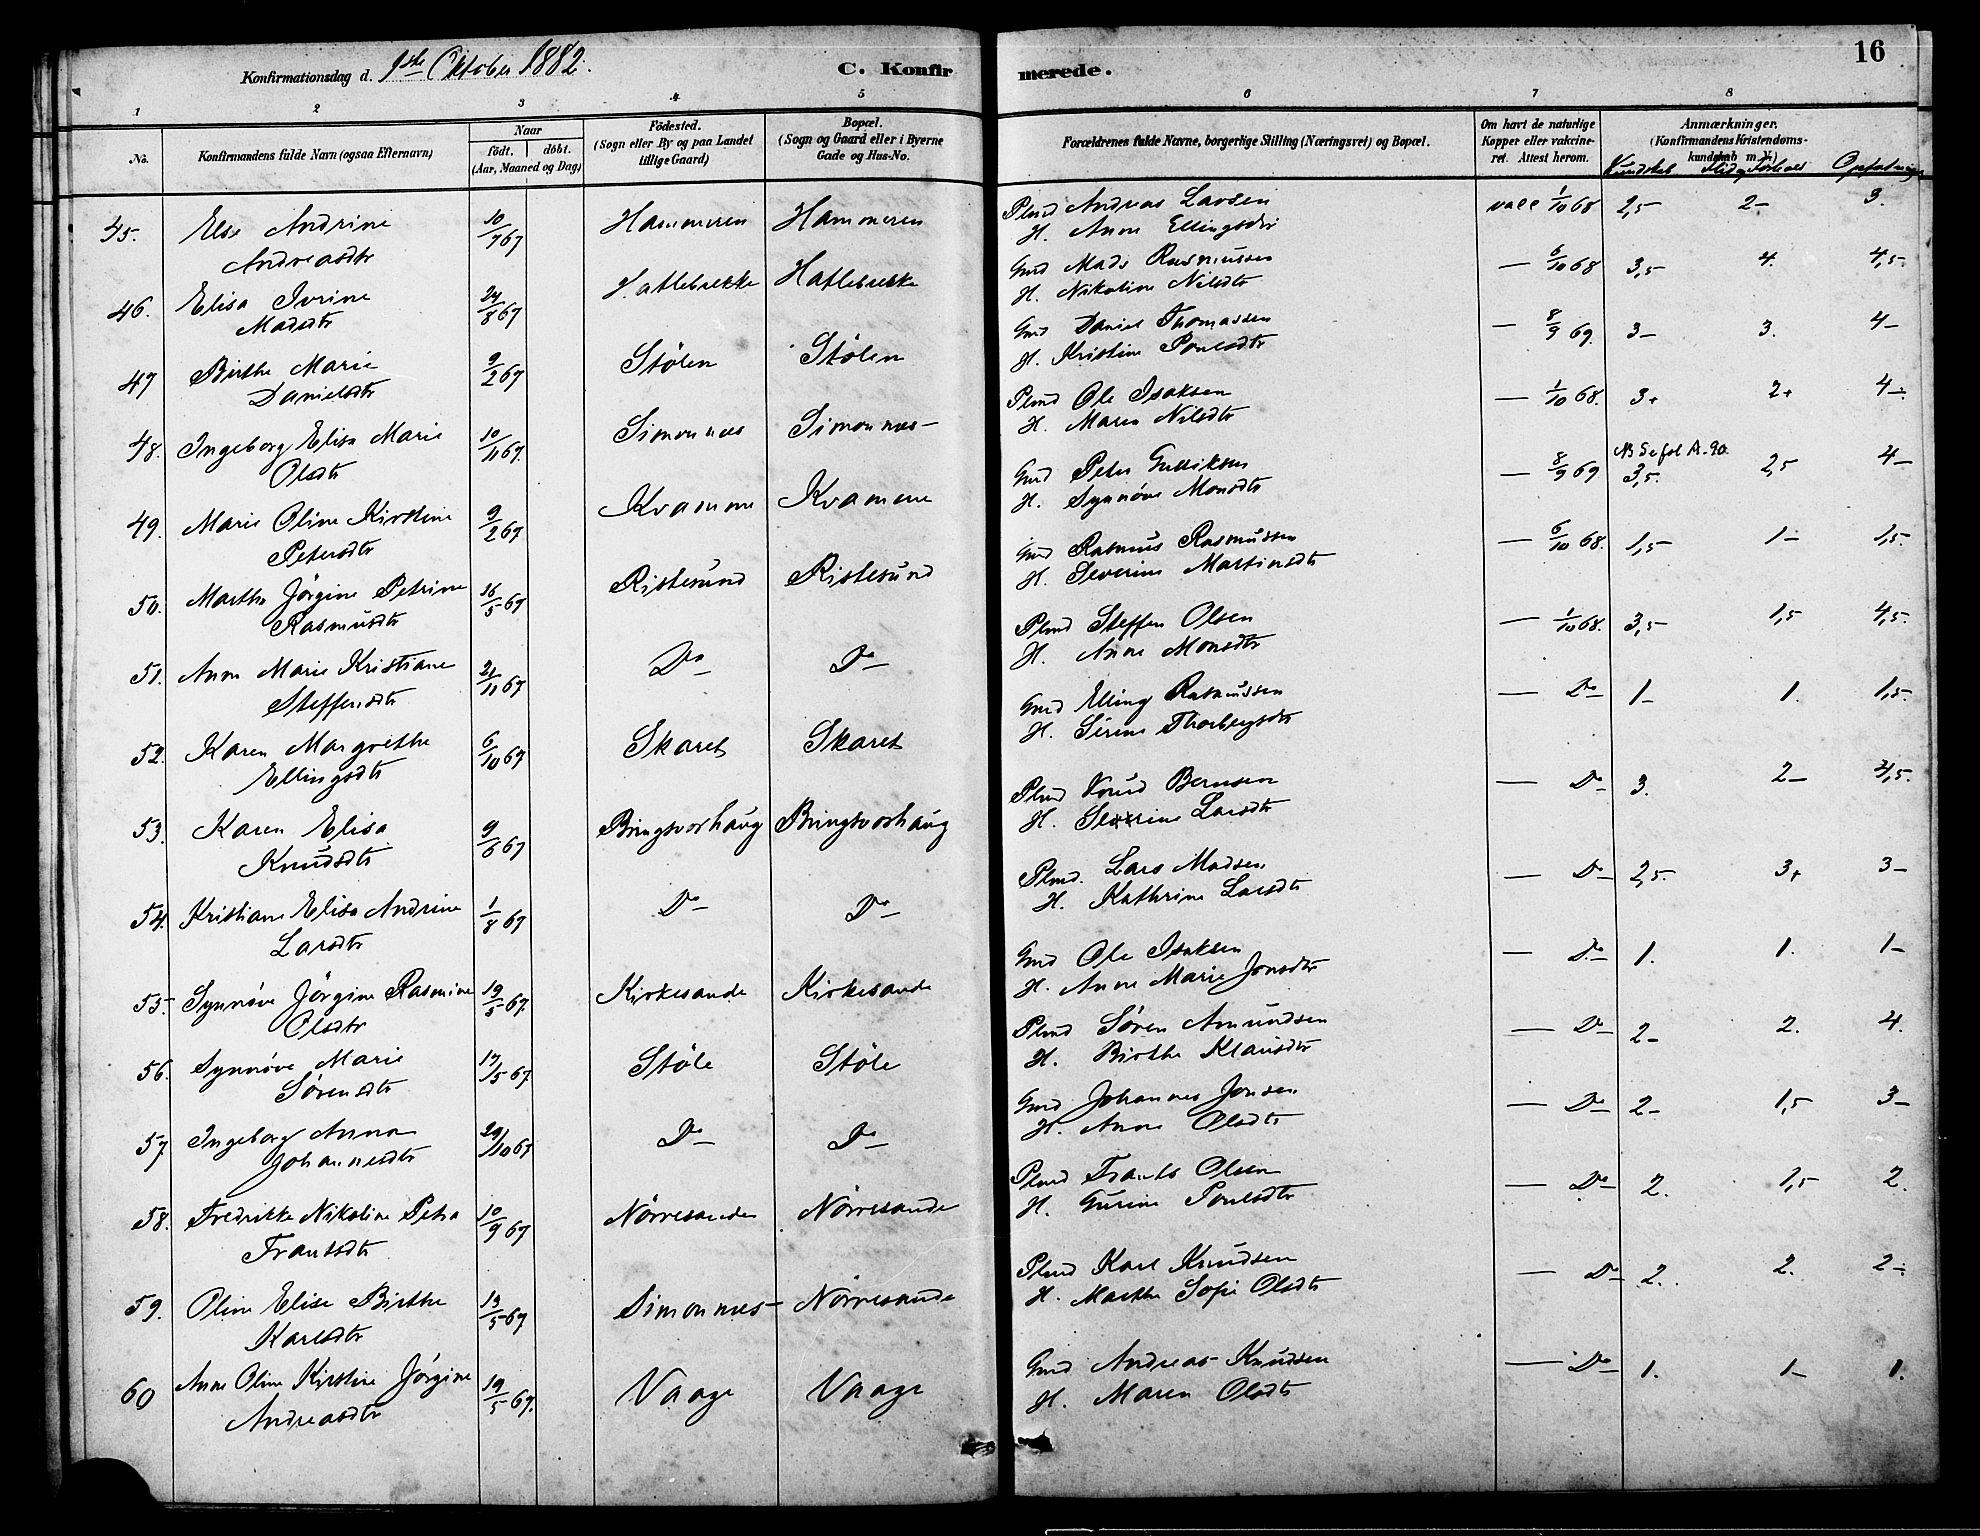 16
Konfirmationsdag d. 1ste Oktober 1882.
C. Konfir merede.
1 2 3 4 5 6 7 8
No.
Konfirmandens fulde Navn (ogsaa Efternavn)
Naar
födt. döbt.
(Aar, Maaned og Dag)
Födested.
(Sogn eller By og paa Landet
tillige Gaard)
Bopæl.
(Sogn og Gaard eller i Byerne
Gade og Hus-No.
Forældrenes fulde Navne, borgerlige Stilling (Næringsvei) og Bopæl.
Om havt de naturlige
Kopper eller vakcine-
ret. Attest herom.
Anmærkninger.
(Konfirmandens Kristendoms-
kundskab m. V.)
Kundskab Flid og Forhold
45. Else Andrine 10/7 67 Hammeren Hammeren Plmd Andreas Larsen vacc 1/10 68 2,5 2- 3.
Andreasdtr H. Anne Ellingsdtr
46. Elisa Ivrine 24/8 67 Hatlebrekke Hatlebrekke Gmd Mads Rasmussen — 6/10 68 3,5 4. 4,5.
Madsdtr H. Nikoline Nilsdtr
47 Birthe Marie 9/2 67 Stölen Stölen Gmd Daniel Thomassen — 8/9 69. 3- 3. 4-
Danielsdtr H. Kristine Poulsdtr
48. Ingeborg Elisa Marie 10/11 67. Simonnes Simonnes- Plmd Ole Isaksen — 1/10 68. 3+ 2+ 4-
Olsdtr H. Maren Nilsdtr
NB Se fol A. 90.
49. Marie Oline Kirstine 9/2 67 Kvamme Kvamme Gmd Peter Gulliksen — 8/9 69 3,5. 2,5 4-
Petersdtr H. Synnöve Monsdtr
50. Marthe Jörgine Petrine 16/5 67 Ristesund Ristesund Gmd Rasmus Rasmussen — 6/10 68. 1,5 1- 1,5.
Rasmusdtr H. Severine Martinsdtr
51. Anne Marie Kristiane 21/11 67 Do Do Plmd Steffen Olsen — 1/10 68. 3,5 1,5 4,5.
Steffensdtr H. Anne Monsdtr
52. Karen Margrethe 6/10 67 Skaret Skaret Gmd Elling Rasmussen — Do 1- 1. 1,5.
Ellingsdtr H. Sirine Thorbergsdtr
53. Karen Elisa 9/6 67 Bringsvorhaug Bringsvorhaug Plmd Knud Bernsen — Do 3. 2- 4,5.
Knudsdtr H. Larsdtr
54. Kristiane Elisa Andrine 1/8 67 Do Do Plmd. Lars Madsen — Do 2,5. 3+ 3-
Larsdtr H. Kathrine Larsdtr
55. Synnöve Jörgine Rasmine 19/5 67. Kirkesande Kirkesande Gmd Ole Isaksen — Do 1. 1. 1-
Olsdtr H. Anne Marie Jonsdtr
56. Synnöve Marie 17/5 67. Stöle Stöle Plmd Sören Amundsen — Do 2- 2. 4.
Sörensdtr H. Birthe Klausdtr
57 Ingeborg Anna 29/10 67 Do Do Gmd Johannes Jonsen — Do 2- 1,5 3-
Johannesdtr H. Anne Olsdtr
58. Fredrikke Nikoline Petra 10/9 67 Nörresande Nörresande Plmd Frants Olsen — Do 2. 1,5 2.
Frantsdtr H. Gurine Poulsdtr
59. Oline Elise Birthe 13/5 67 Simonnes- Nörresande Plmd Karl Knudsen — Do 2. 2. 2-
Karlsdtr H. Marthe Sofie Olsdtr
60 Anne Oline Kirstine Jörgine 19/5 67. Vaage Vaage Gmd Andreas Knudsen — Do 1. 1- 1.
Andreasdtr H. Maren Olsdtr